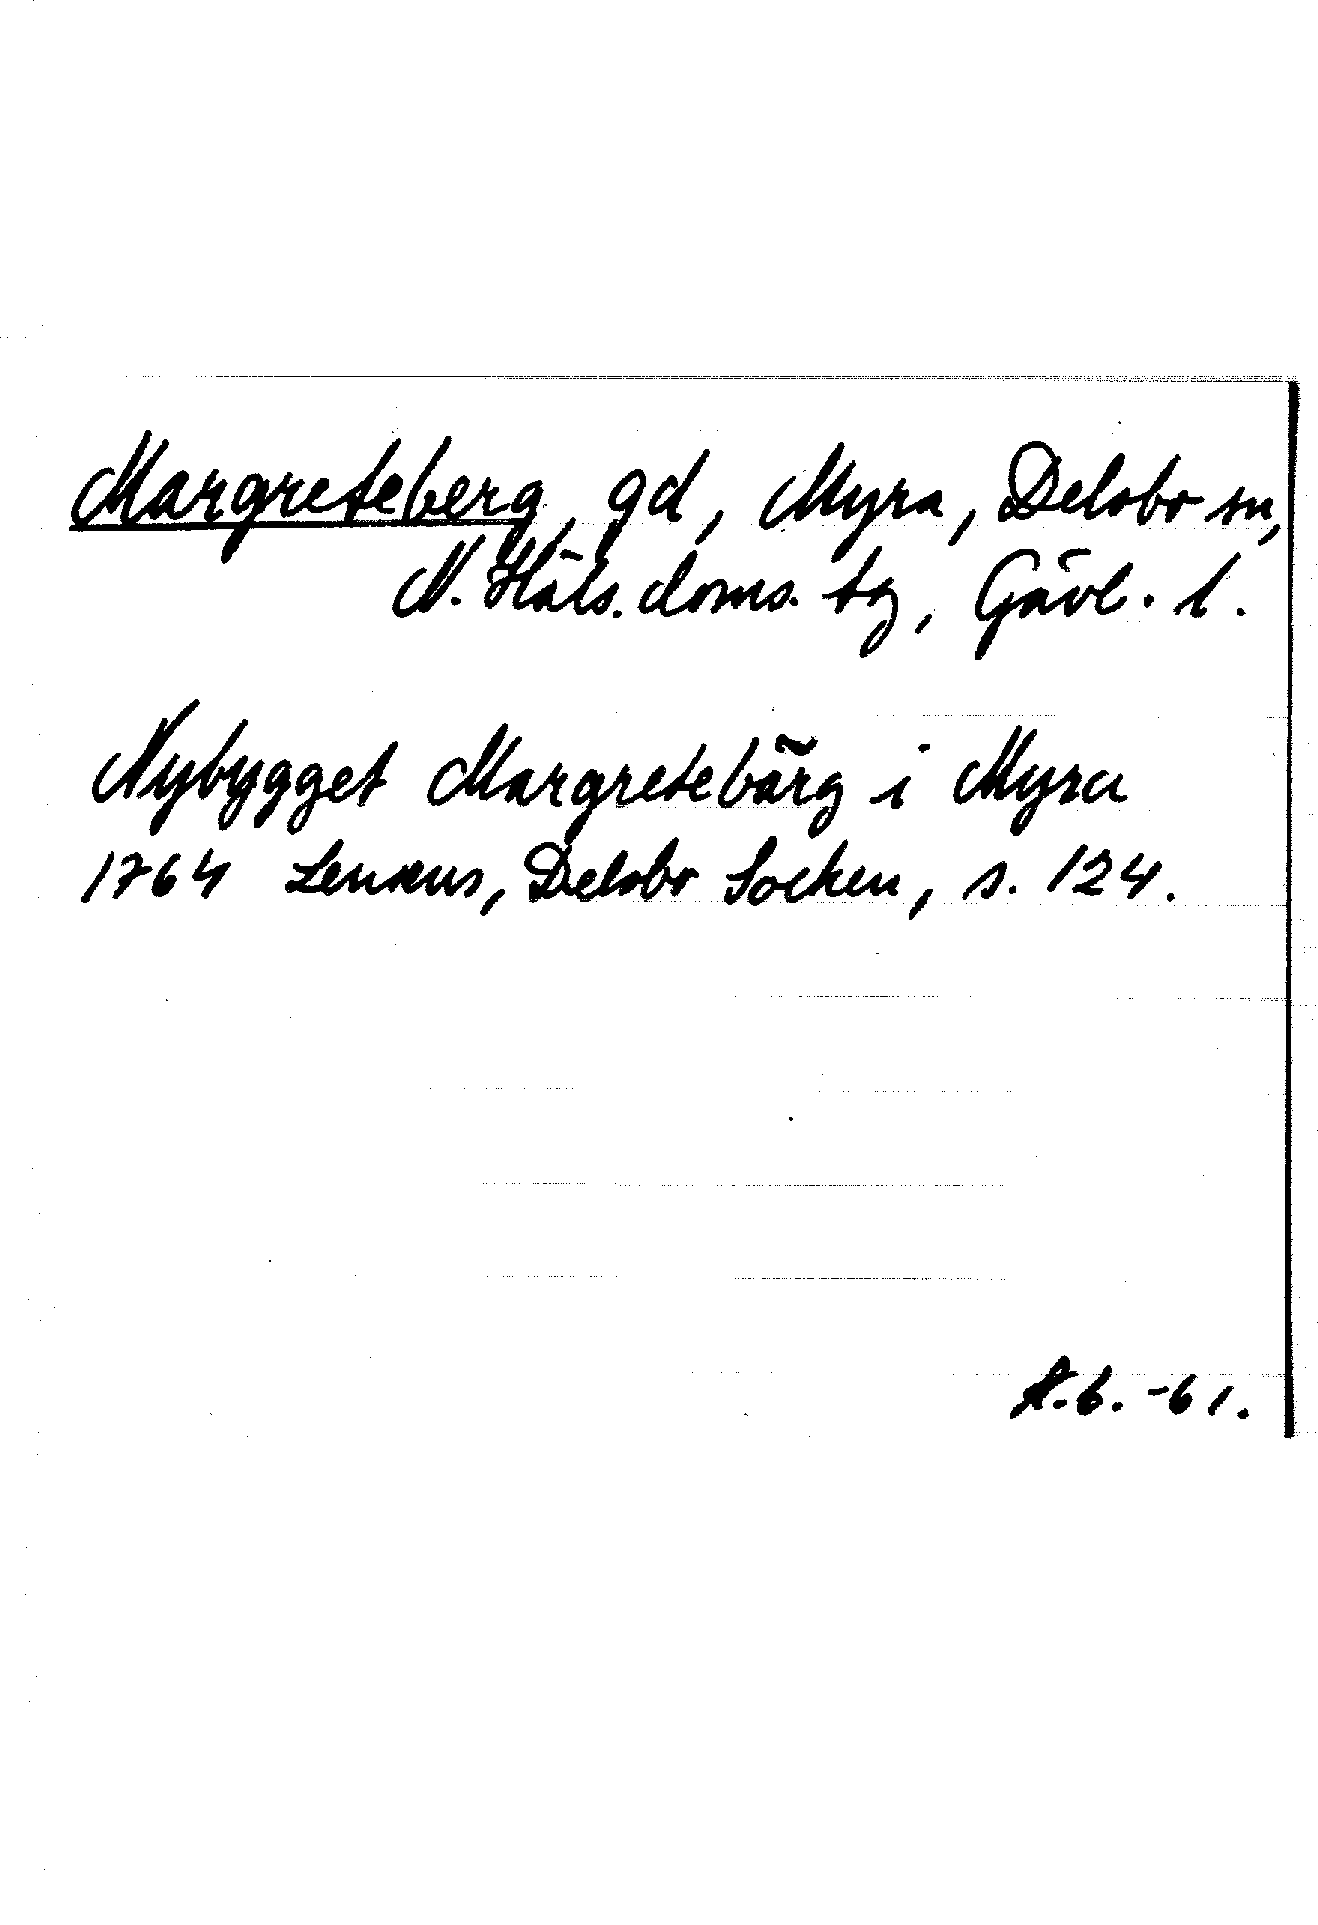 Margreteberg, gd, Myra, Delsbo sn,
N. Häls. doms. tg, Gävl. l.
Nybygget Margretebärg i Myra
1764 Lenæus, Delsbo Socken, s. 124.
A.b. -61.